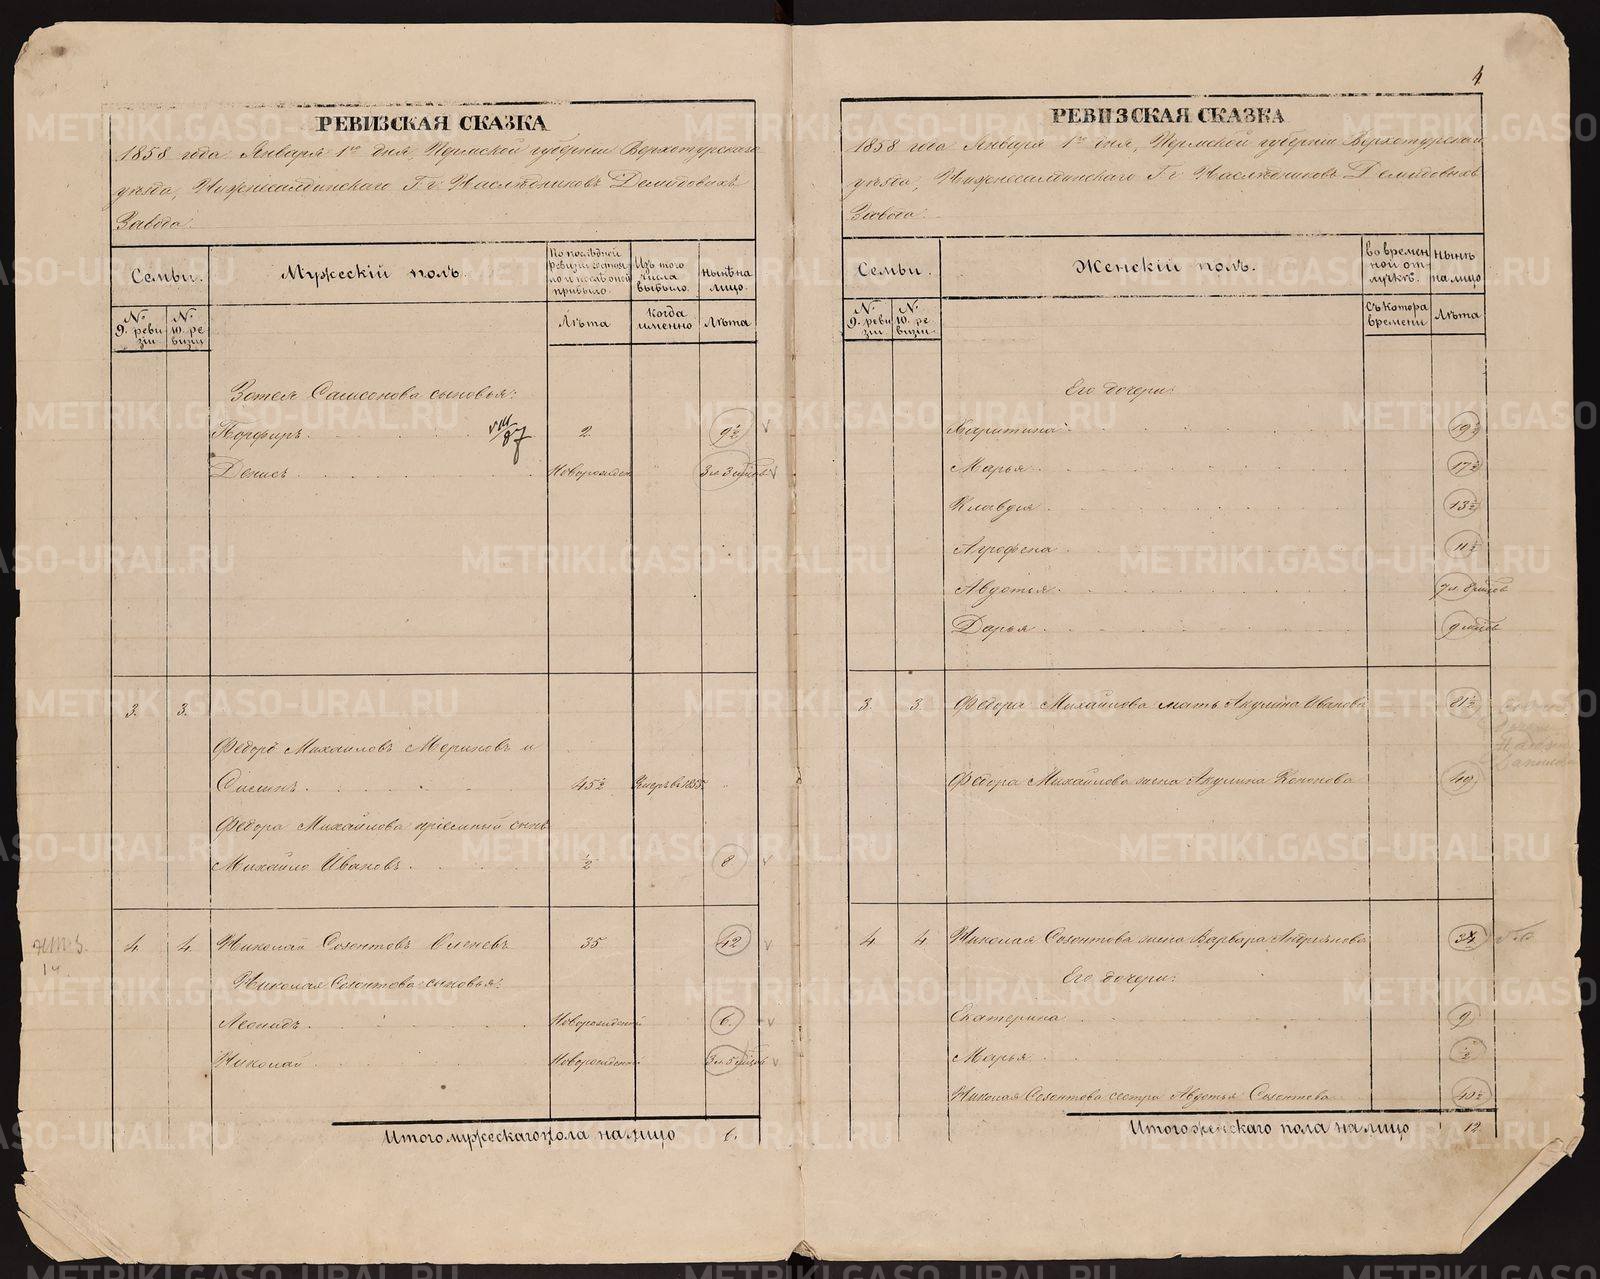 4
РЕВИЗСКАЯ СКАЗКА
1858 года Января 1го дня, Пермской губернии Верхотурскаго
уѣзда, Нижнесалдинскаго Г.г. Наслѣдниковъ Демидовыхъ
Завода.
Семьи.
Мужескій полъ.
По послѣдней ревизіи состояло и послѣ оной прибыло.
Изъ того числа выбыло.
Нынѣ на лицо.
№ 9. ревизіи
№ 10. ревизіи
Лѣта
Когда именно
Лѣта
Зотея Самсонова сыновья:
Порфиръ. VIII/87 2. 9½
Денисъ Новорожден 3 л 3 мѣсов
3. 3.
Федоръ Михаиловъ Мериновъ и
Силинъ. 45½ Умеръ въ 1855.
Федора Михайлова пріемный сынъ
Михайло Ивановъ. ½ 8
4. 4. Николай Созонтовъ Оленевъ 35 42
Николая Созонтова сыновья:
Леонидъ. Новорожденный 6.
Николай Новорожденный 3 л 5 мѣсов
Итого мужескаго пола на лицо 6.
РЕВИЗСКАЯ СКАЗКА
1858 года Января 1го дня, Пермской губерніи Верхотурскаго
уѣзда, Нижнесалдинскаго Г.г. Наслѣдниковъ Демидовыхъ
Завода.
Семьи.
Женскій полъ.
Во временной отлучкѣ.
Нынѣ на лицо
№ 9. ревизіи
№ 10. ревизіи
Съ котора времени
Лѣта
Его дочери:
Харитина 19½
Марья 17½
Клавдія 13½
Агрофена 11½
Авдотья 7 л. 8 мѣсов
Дарья 9 мѣсов
3. 3. Федора Михайлова мать Акулина Иванова 81½
Федора Михайлова жена Акулина Кононова 49
4. 4. Николая Созонтова жена Варвара Андреянова 34
Его дочери:
Екатерина 9
Марья ½
Николая Созонтова сестра Авдотья Созонтова 40½
Итого женскаго пола на лицо 12.
METRIKI.GASO-URAL.RU